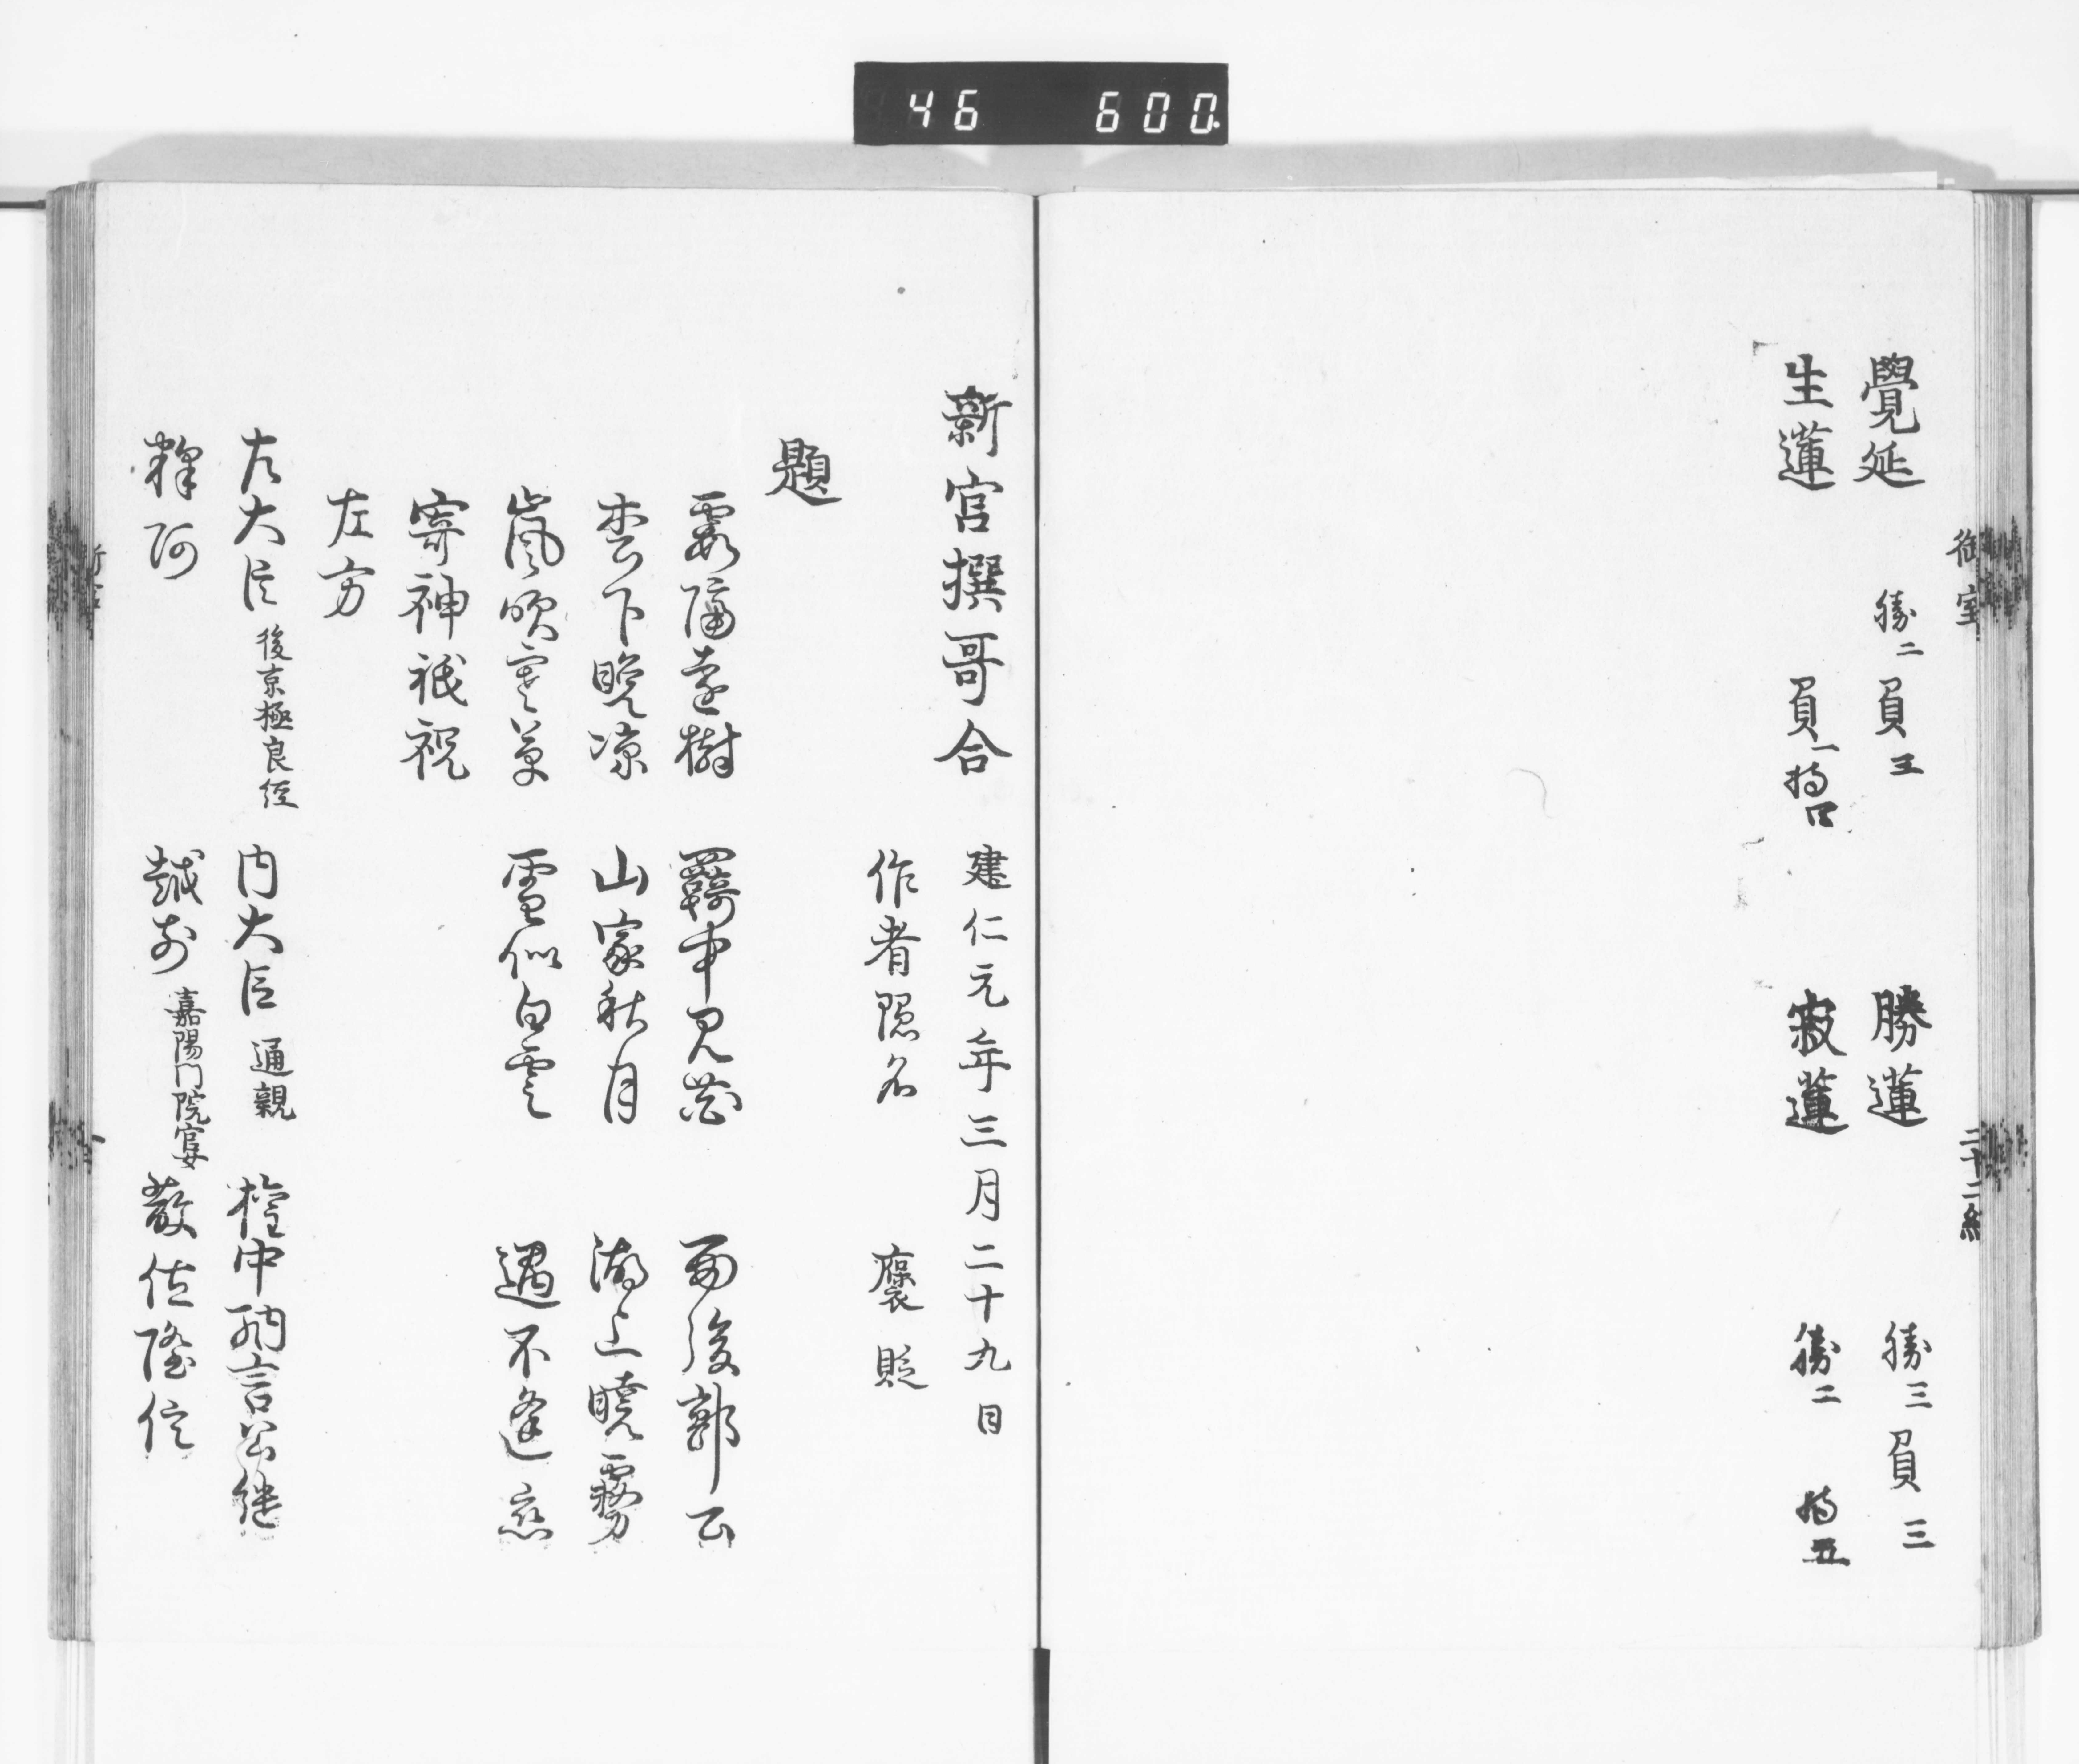 46 600.
御室
覺延 勝二 負三 勝蓮 勝三 負三
生蓮 負一 持四 寂蓮 勝二 持五
二十二終
新宮撰哥合 建仁元年三月二十九日
作者隠名 褒貶
題
霞隔遠樹 羇中見花 雨後郭公
松下晩凉 山家秋月 湖上暁霧
嵐吹寒草 雪似白雲 遇不逢恋
寄神祇祝
左方
左大臣 後京極良経 内大臣 通親 権中納言公継
釋阿 越前 嘉陽門院官女 散位隆信